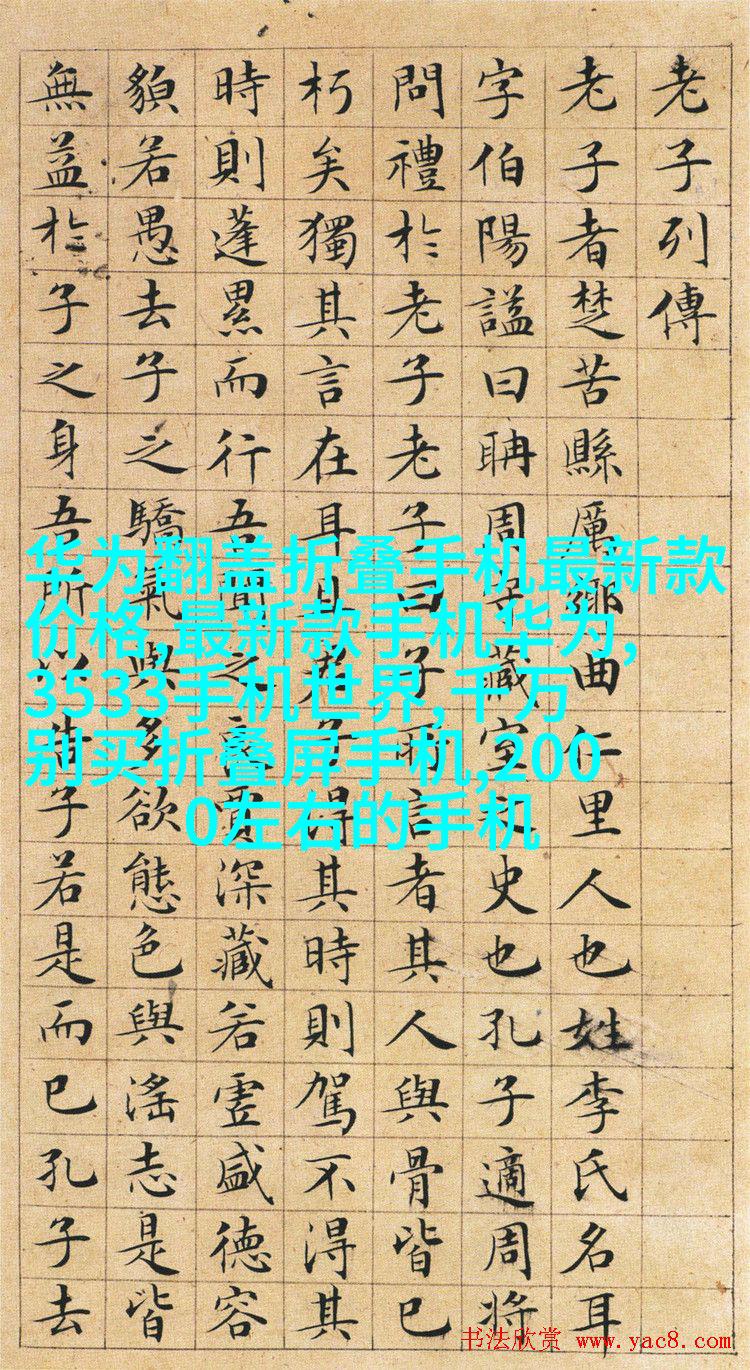 老子列傳
老子者楚苦縣厲鄉曲仁里人也姓李氏名耳
字伯陽謚曰聃周守藏室之史也孔子適周將
問禮於老子老子曰子所言者其人與骨皆已
朽矣獨其言在耳且君子得其時則駕不得其
時則蓬累而行吾聞之良賈深藏若虛盛德容
貌若愚去子之驕氣與多欲態色與淫志是皆
無益於子之身吾所以告子若是而已孔子去
华为翻盖折叠手机最新款
价格,最新款手机华为,
3533手机世界,千万
别买折叠屏手机,200
0左右的手机
书法欣赏 www.yac8.com